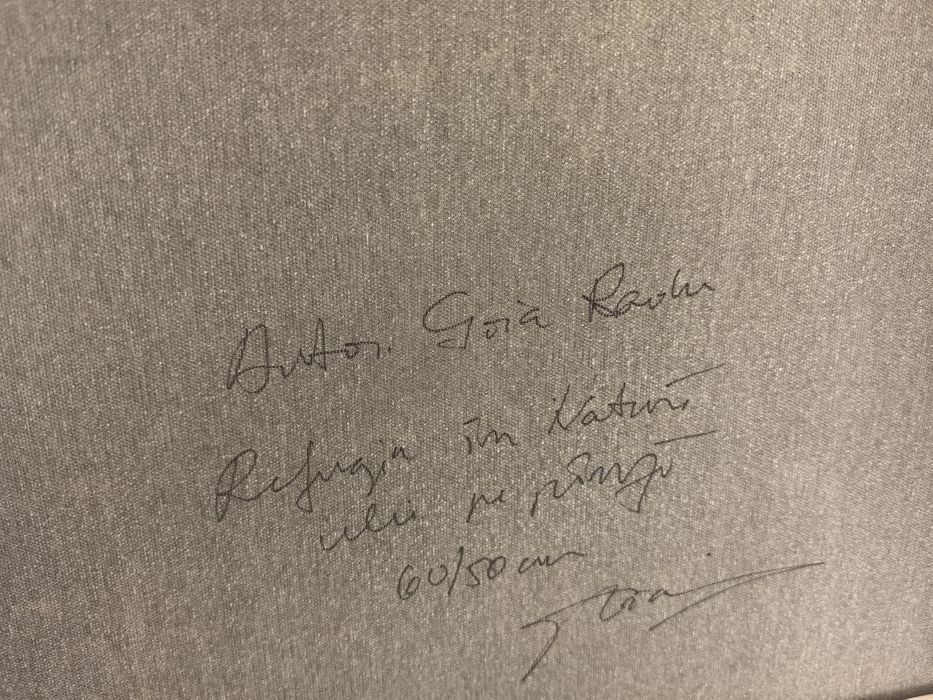 Autor. Goia Radu
Refugiu în Natură
ulei pe pânză
60/50 cm
Goia